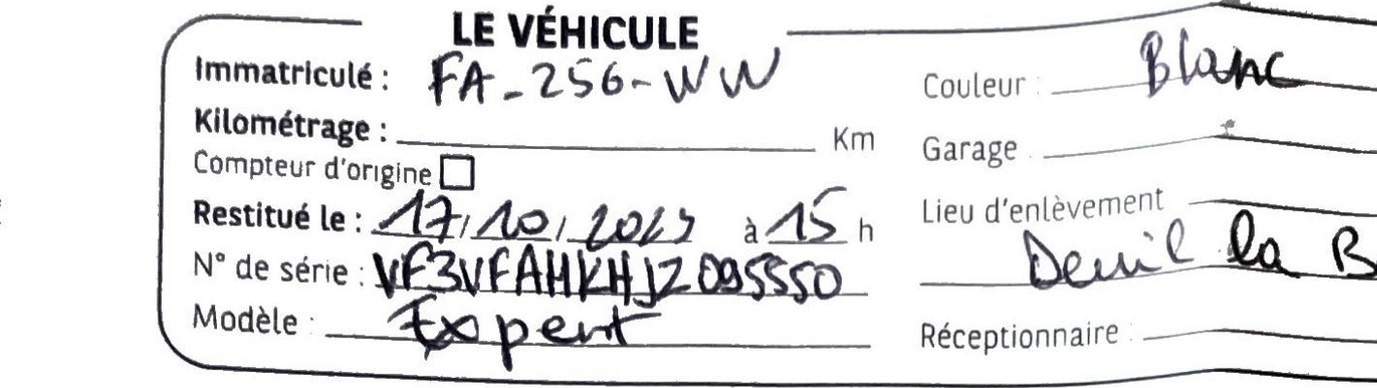 LE VÉHICULE
Immatriculé : FA-256-WW
Kilométrage : Km
Compteur d'origine
Restitué le : 17/10/2025 à 15 h
N° de série : VF3VFAHKHJZ095550
Modèle : Expert
Couleur : Blanc
Garage
Lieu d'enlèvement
Deuil la B
Réceptionnaire :